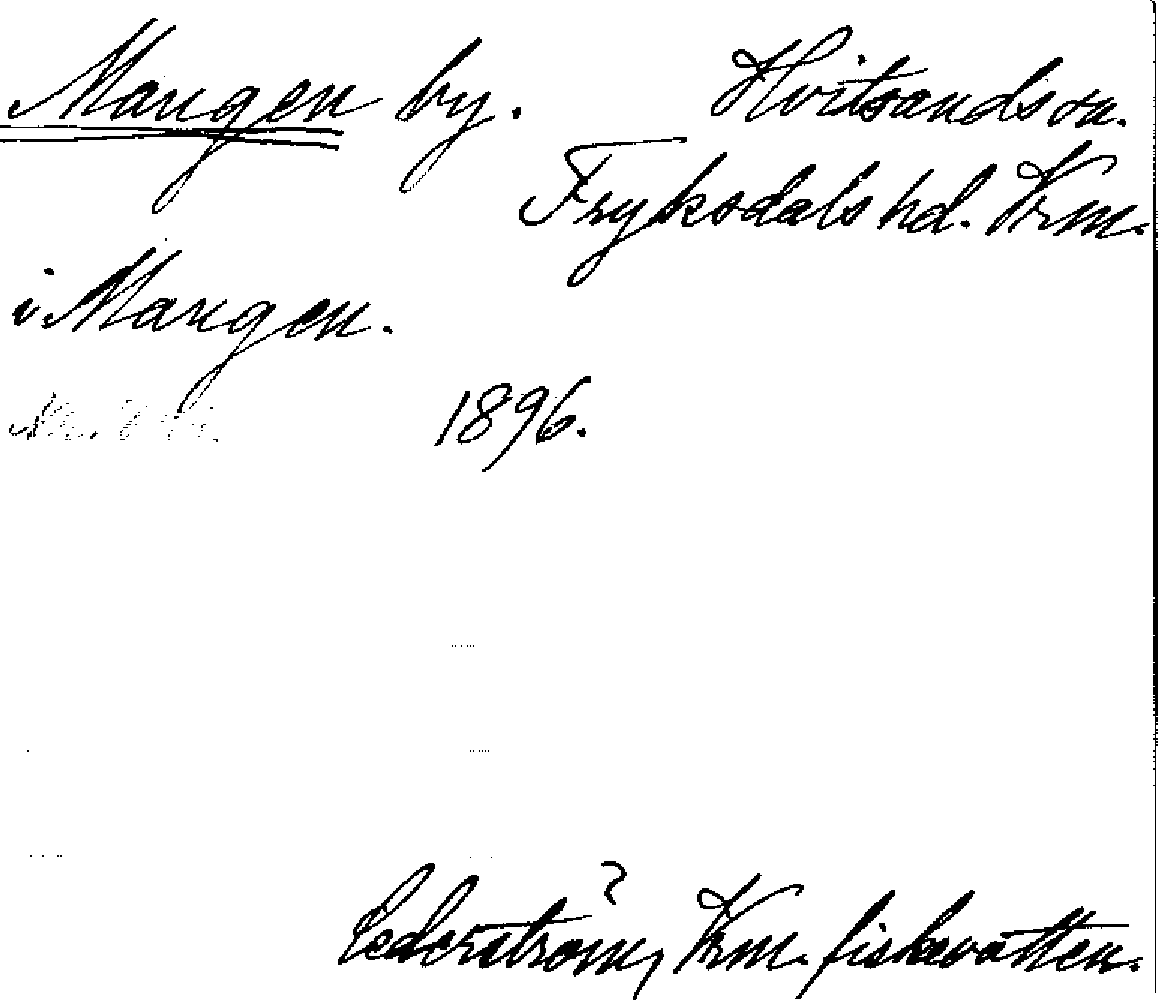 Mangen by. Hvitsands sn.
Fryksdals hd. Vrm.
i Mangen.
1896.
Cederström, Vrm. fiskevatten.